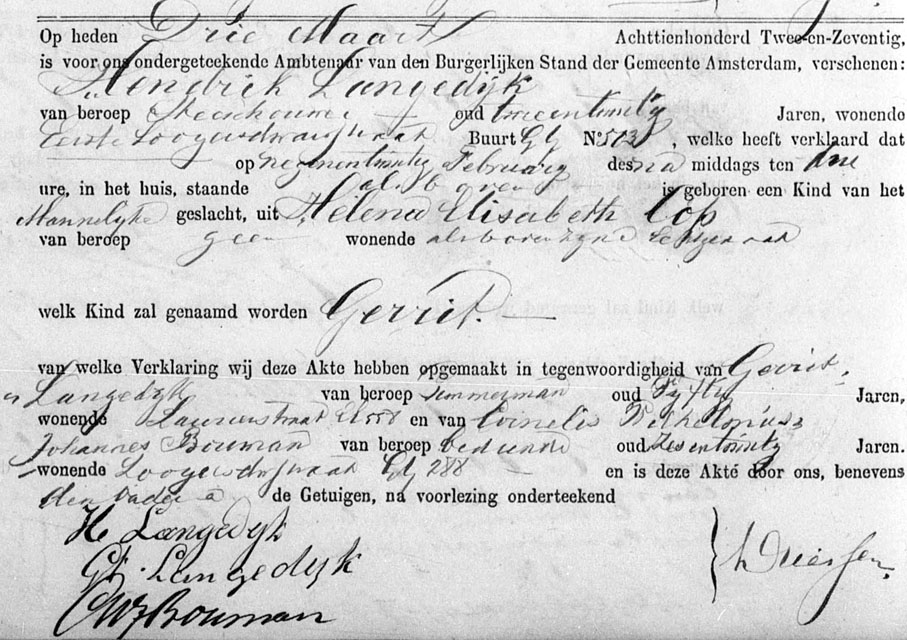 Op heden Drie Maart Achttienhonderd Twee-en-Zeventig,
is voor ons ondergeteekende Ambtenaar van den Burgerlijken Stand der Gemeente Amsterdam, verschenen:
Hendrik Langedijk
van beroep oud tweentwintig Jaren, wonende
Eerste Looyersdwarsstraat Buurt N° 513, welke heeft verklaard dat
op negenentwintig Februarij des na middags ten drie
ure, in het huis, staande als boven is geboren een Kind van het
Mannelijke geslacht, uit Helena Elisabeth Cop
van beroep geen wonende als boven zijne Echtgenoot
welk Kind zal genaamd worden Gerrit. —
van welke Verklaring wij deze Akte hebben opgemaakt in tegenwoordigheid van Gerrit
Langedijk van beroep Timmerman oud Vyftig Jaren,
wonende Laurierstraat en van Cornelis Wilhelmus
Johannes Bouman van beroep bediende oud Zesentwintig Jaren.
wonende Looyersdwstraat 288 en is deze Akte door ons, benevens
den Vader & de Getuigen, na voorlezing onderteekend
H Langedijk
Langedijk
CWJ Bouman